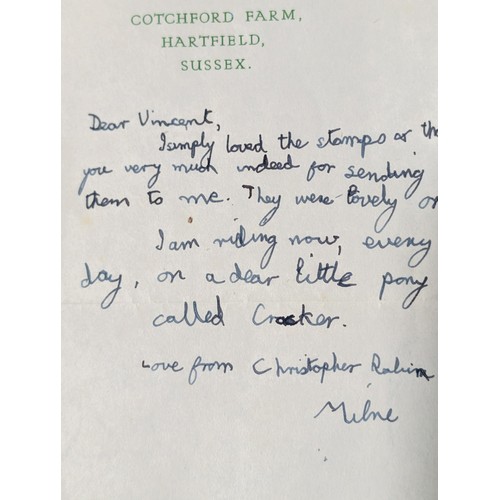 COTCHFORD FARM,
HARTFIELD,
SUSSEX.
Dear Vincent,
I simply loved the stamps
you very much indeed for sending
them to me. They were lovely
I am riding now, every
day, on a dear little pony
called Cracker.
Love from Christopher Robin
Milne